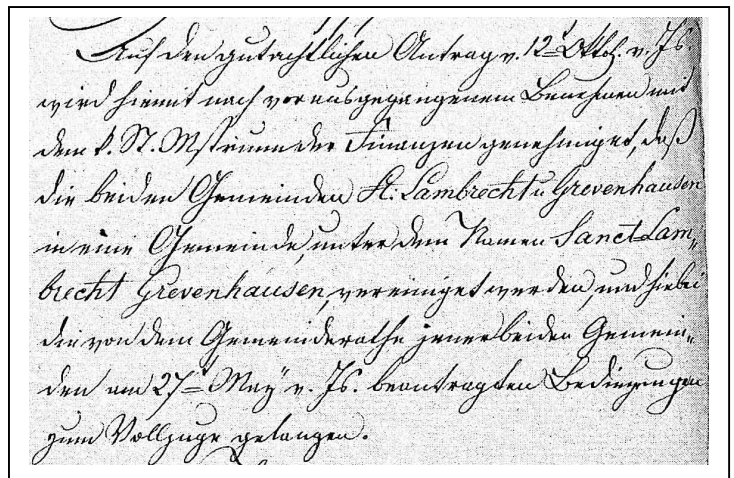 Auf den gutachtlichen Antrag v. 12ⁿ Oktob. v. Js.
wird hiemit nach vorausgegangenem Benehmen mit
dem k. St. Mstrium der Finanzen genehmiget, daß
die beiden Gemeinden St: Lambrecht u Grevenhausen
in eine Gemeinde, unter dem Namen Sanct Lam„
brecht Grevenhausen, vereiniget werden, und hiebei
die von dem Gemeinderathe jener beiden Gemein„
den am 27ⁿ May v. Js. beantragten Bedingungen
zum Vollzuge gelangen.